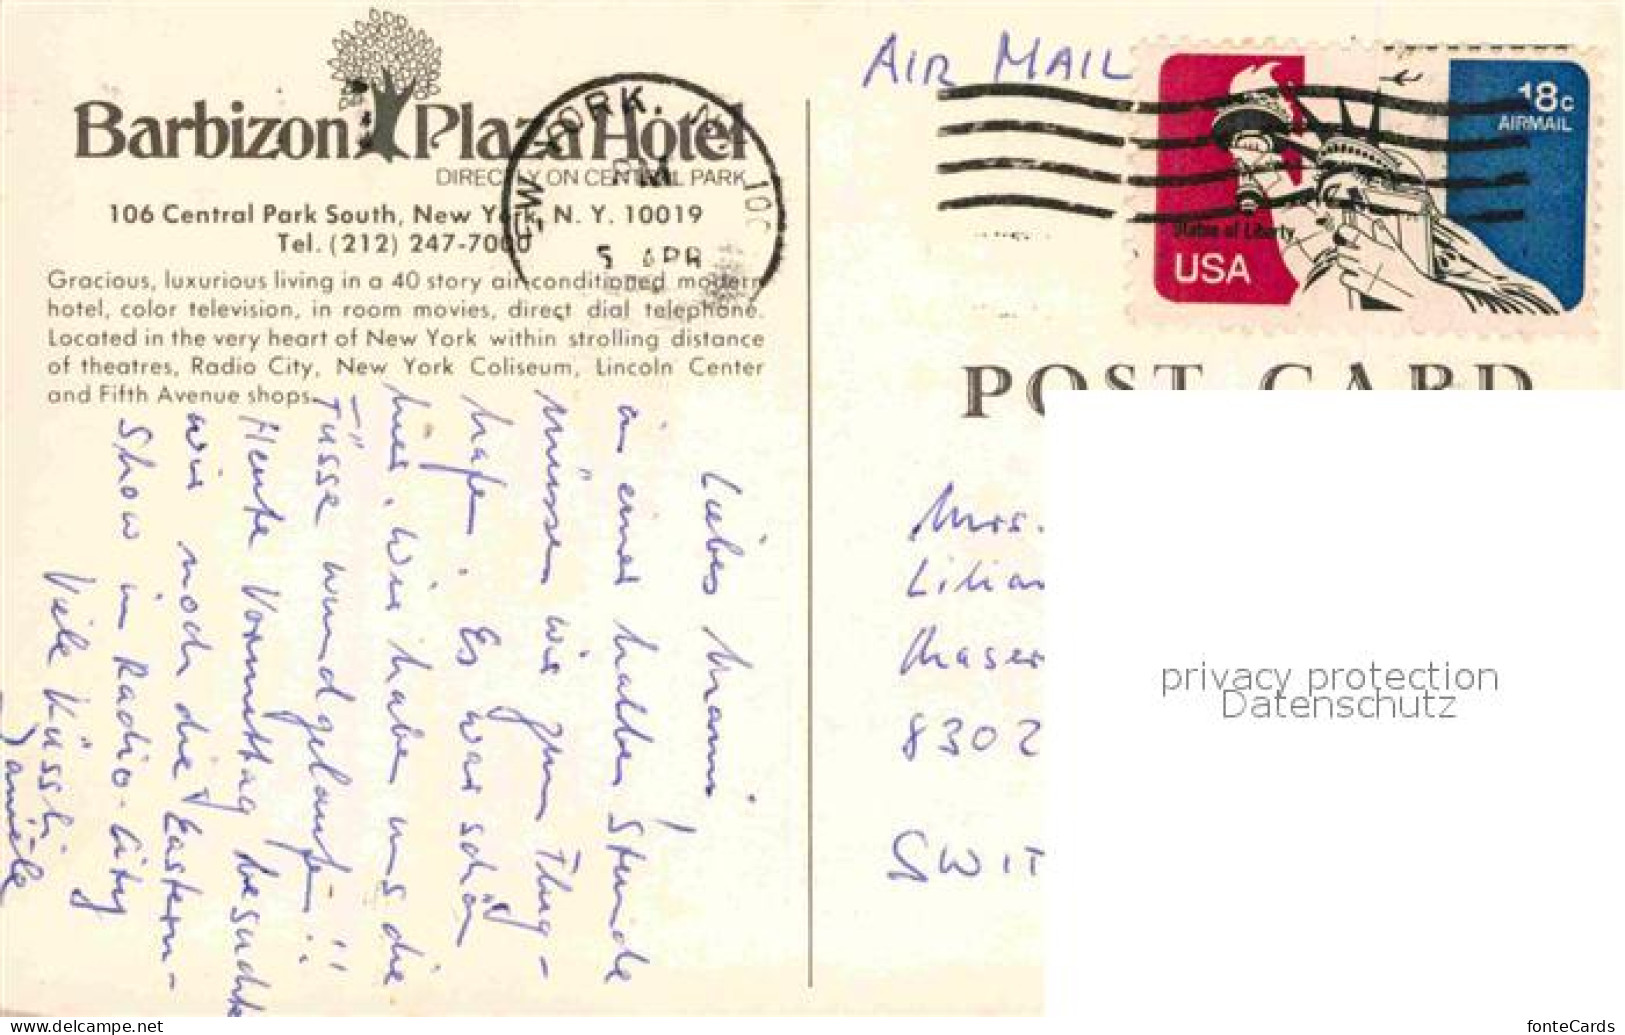 Barbizon Plaza Hotel
DIRECTLY ON CENTRAL PARK
106 Central Park South, New York, N. Y. 10019
Tel. (212) 247-7000
Gracious, luxurious living in a 40 story air-conditioned modern
hotel, color television, in room movies, direct dial telephone.
Located in the very heart of New York within strolling distance
of theatres, Radio City, New York Coliseum, Lincoln Center
and Fifth Avenue shops.
Liebes Mami!
in einer halben Stunde
müssen wir zum Flug-
hafen. Es war schön
hier. Wir haben uns die
Füsse wund gelaufen!!
Heute Vormittag besuchte
wir noch die Eastern-
Show in Radio-City
Viele Küssli
NEW YORK, N.Y. 100
PM
5 APR
AIR MAIL
18c
AIRMAIL
Statue of Liberty
USA
POST CARD
Mrs.
Lilian
8302
SWIT
privacy protection
Datenschutz
www.delcampe.net
fonteCards